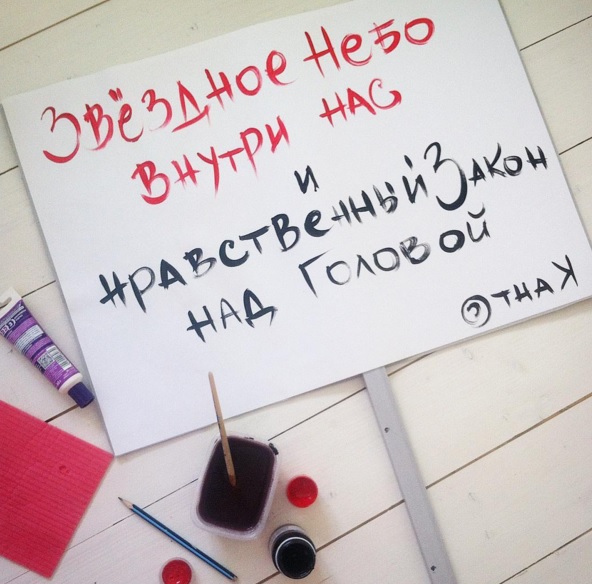 Звёздное Небо
внутри нас
и
нравственный Закон
над Головой
©тнаК